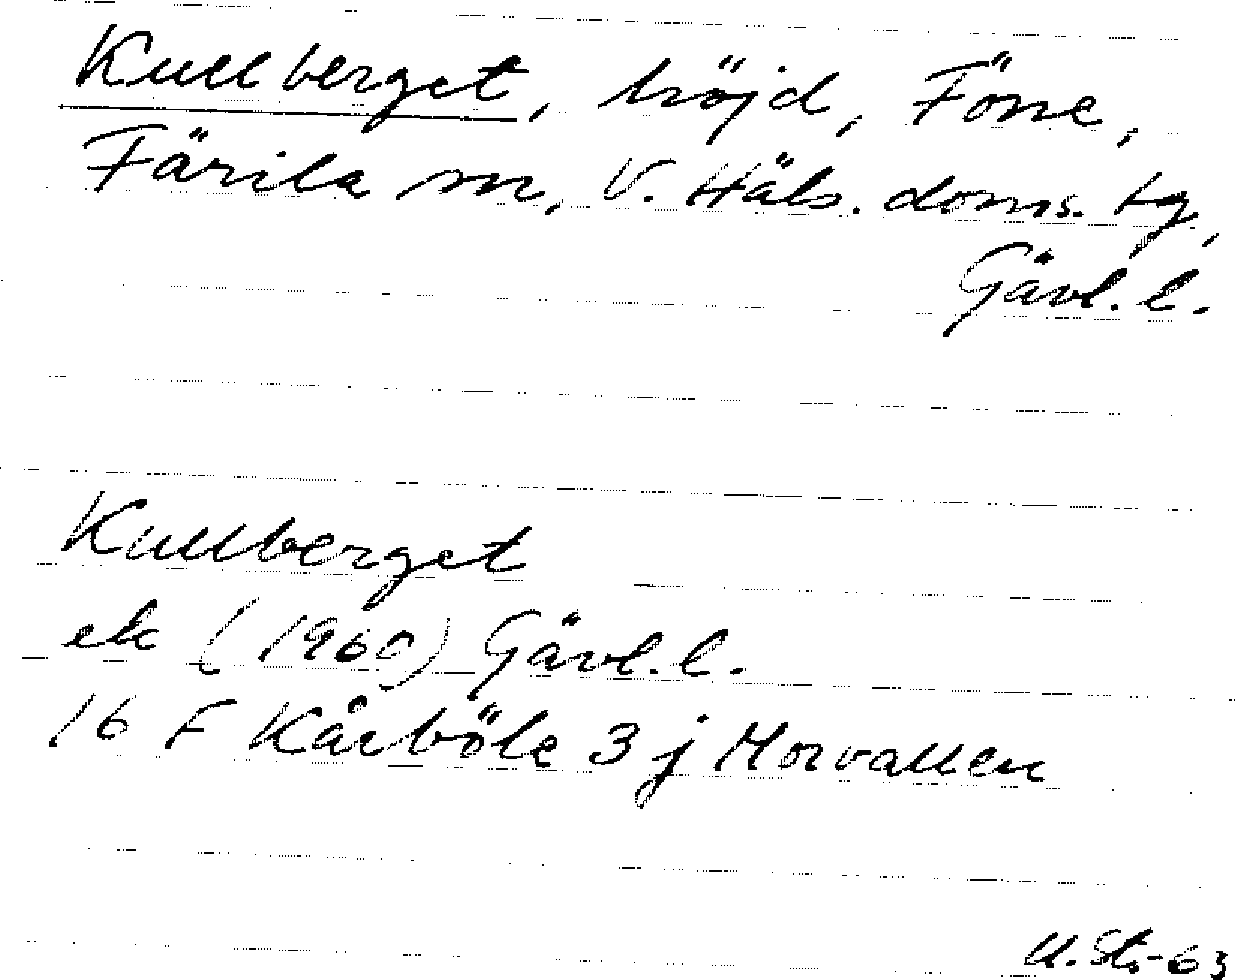 Kullberget, höjd, Föne,
Färila sn, V. Häls. doms. tg,
Gävl. l.
Kullberget
ek (1960) Gävl. l.
16 F Kårböle 3 j Morvallen
U. St. -63